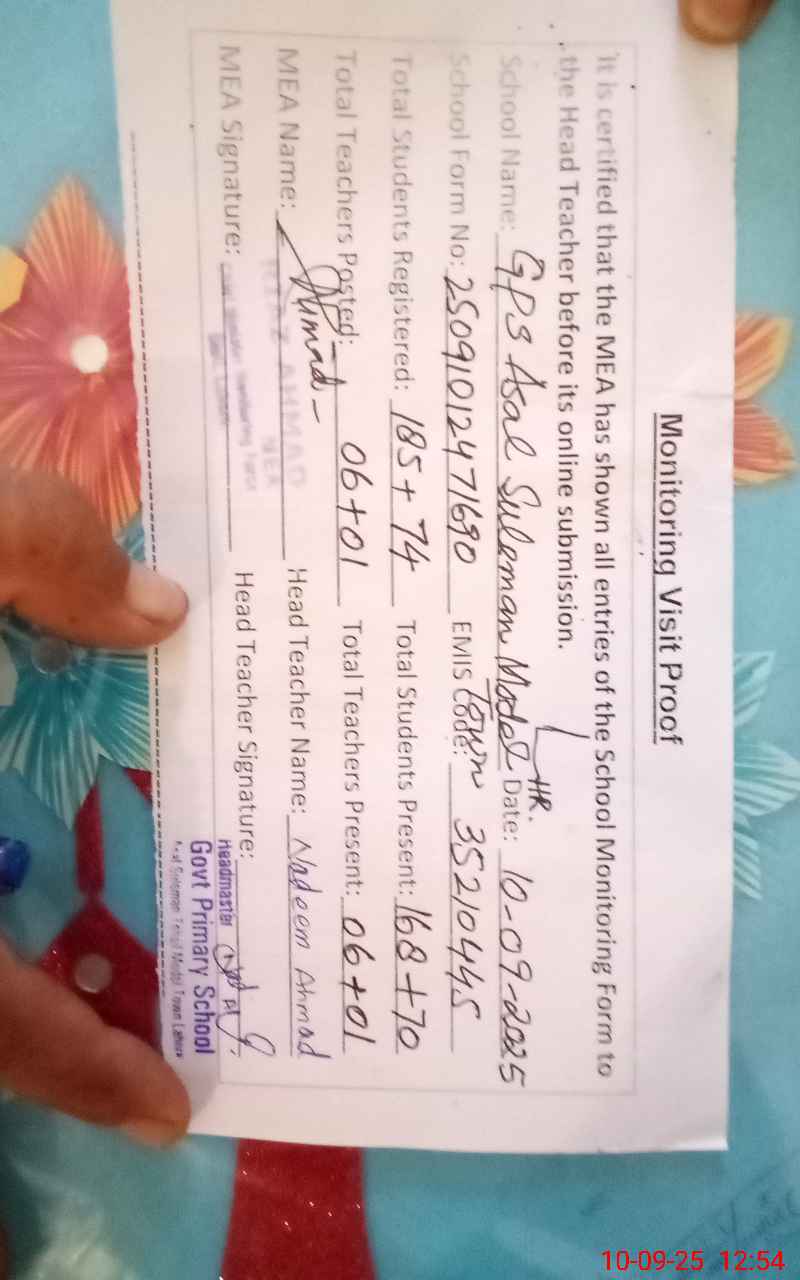 Monitoring Visit Proof
It is certified that the MEA has shown all entries of the School Monitoring Form to
the Head Teacher before its online submission.
School Name: GPS Asal Suleman Model Town HR. Date: 10-09-2025
School Form No: 25091012471690 EMIS Code: 35210445
Total Students Registered: 185+74 Total Students Present: 168+70
Total Teachers Posted: 06+01 Total Teachers Present: 06+01
MEA Name: AHMAD Head Teacher Name: Nadeem Ahmad
MEA
MEA Signature: Head Teacher Signature:
Headmaster
Govt Primary School
Asal Suleman Model Town Lahore
10-09-25 12:54